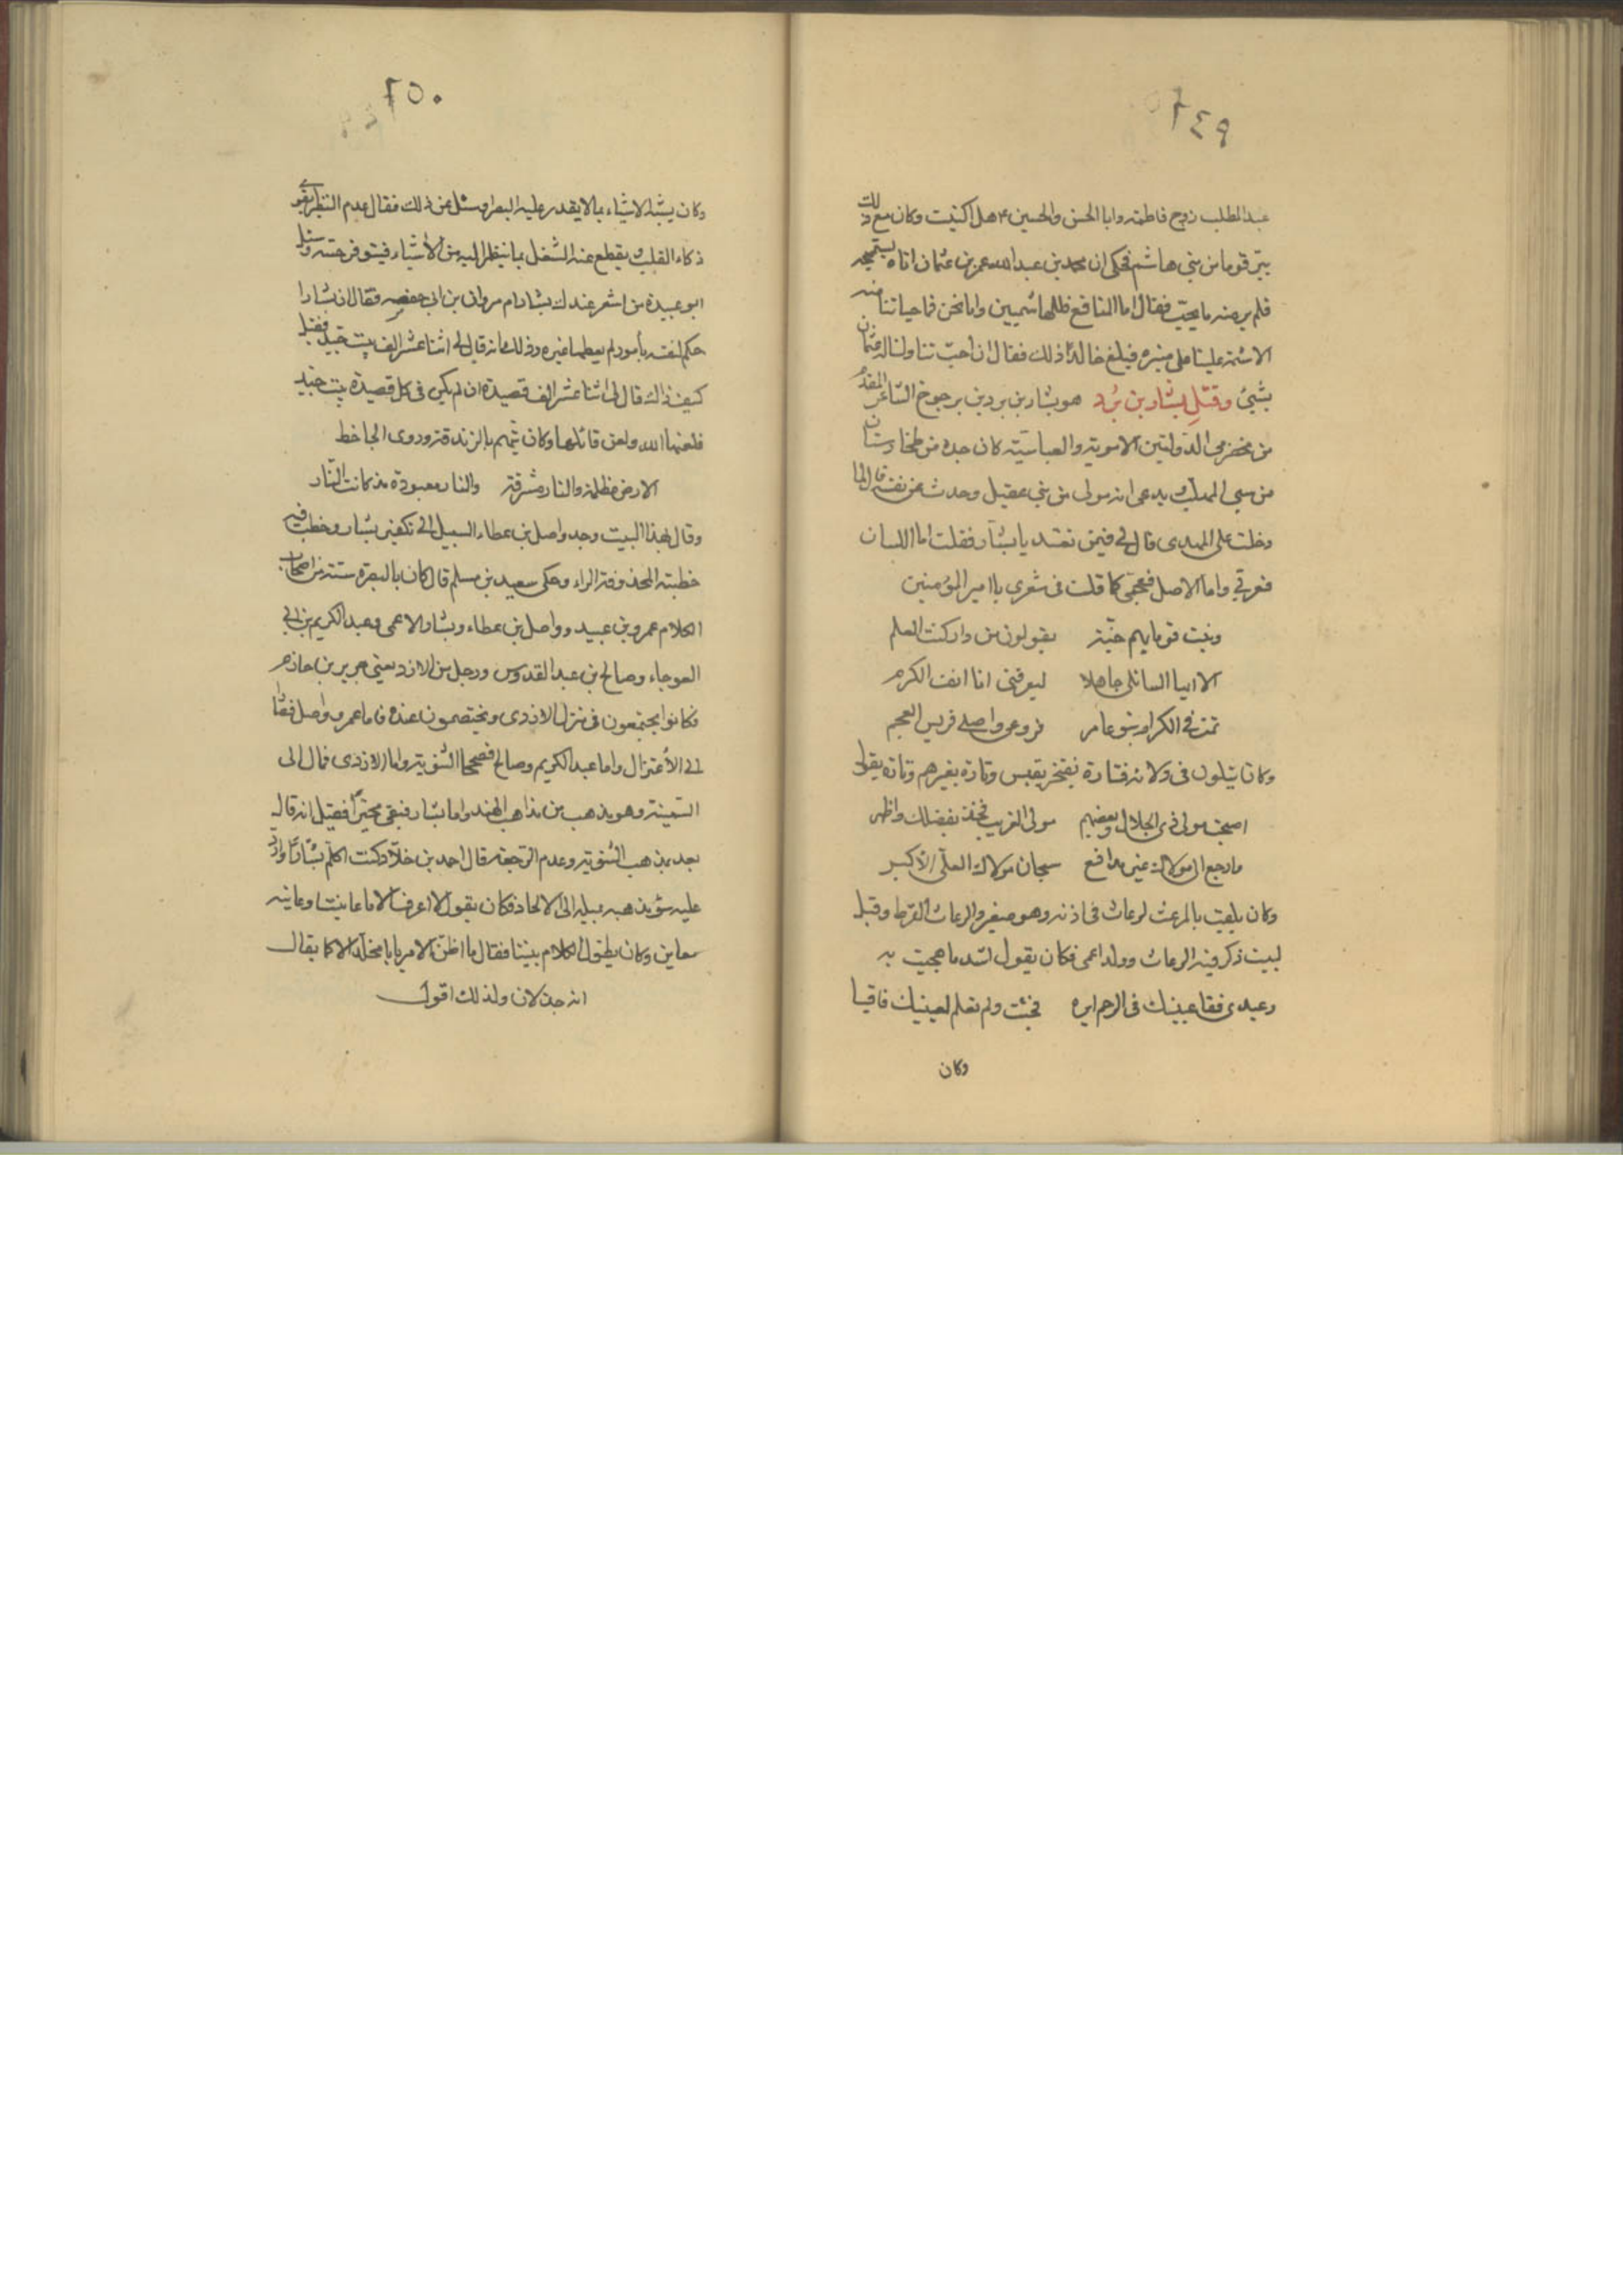 ٢٤٩
عبد المطلب زوج فاطمة وابا الحسن والحسين ٤ هل اكنيت وكان مع ذلك
يبرّ قوما من بني هاشم فحكى ان محمد بن عبد الله عمر بن عثمان اتاه يستميحه
فلم ير منه ما يحب فقال اما المنافع فللهاشميين واما نحن فما حياتنا منه
الا شتمه علينا على منبره فبلغ خالدًا ذلك فقال ان احبّ تناولنا له عثمان
بشيئ وقتل بشار بن بُرد هو بشار بن برد بن يرجوخ الشاعر المقدم
من مخضرمي الدولتين الاموية والعباسية كان جده من طخارستان
من سبي المهلب يدعى انه مولى من بني عقيل وحدث عن نفسه قال لما
دخلت على المهدي قال لي فيمن تعتد يا بشار فقلت اما اللسان
فعربي واما الاصل فعجمي كما قلت في شعري يا امير المؤمنين
ونبت قوما بهم جنّة يقولون من ذا وكنت العلم
الا ايها السائلي جاهلا ليعرفني انا انف الكرم
نمت في الكرام بنو عامر فروعي واصلي قريس العجم
وكان يتلون في ولائه فتارة يفتخر بقيس وتارة بغيرهم وتارة يقول
اصبحت مولى ذي الجلال وبعضهم مولى الغريب فخذ بفضلك وافخر
فارجع الى مولاك غير مدافع سبحان مولاك العلي الاكبر
وكان يلقب بالمرعث لرعاث في اذنه وهو صغير والرعاث القرط وقيل
لبيت ذكر فيه الرعاث وولد اعمى فكان يقول اشد ما هجيت به
وعبدي فقا عينيك في الرحم ايره فجئت ولم تعلم لعينيك فاقيا
وكان
٢٥٠
وكان يشبه الاشياء بما لا يقدر عليه البصراء وسئل عن ذلك فقال عدم النظر يقوي
ذكاء القلب ويقطع عنه الشغل بما ينظر اليه من الاشياء فيتوفر حسّه وسئل
ابو عبيدة من اشعر عندك بشار ام مروان بن ابي حفصه فقال ان بشارا
حكم لنفسه بأمور لم يعطها غيره وذلك انه قال لي اثنا عشر الف بيت جيد فقيل
كيف ذاك قال لي اثنا عشر الف قصيدة ان لم يكن في كل قصيدة بيت جيد
فلعنها الله ولعن قائلها وكان يتهم بالزندقة وروى الجاحظ
الارض مظلمة والنار مشرقة والنار معبودة مذ كانت النّار
وقال بهذا البيت وجد واصل بن عطاء السبيل الى تكفير بشار وخطب فيه
خطبته المحذوفة الراء وحكى سعيد بن مسلم قال كان بالبصرة ستة من اصحاب
الكلام عمرو بن عبيد وواصل بن عطاء وبشار الاعمى وعبد الكريم بن ابي
العوجاء وصالح بن عبد القدوس ورجل من الازد يعني جرير بن حازم
فكانوا يجتمعون في منزل الازدي ويختصمون عنده فاما عمرو واصل فصارا
الى الاعتزال واما عبد الكريم وصالح فصححا الثنوية واما الازدي فمال الى
السمنية وهو مذهب من مذاهب الهند واما بشار فبقي متحيرًا فقيل انه قال
بعد بمذهب الثنوية وعدم الرجعة قال احمد بن خلاد كنت اكلم بشارًا وارد
عليه سؤ مذهبه بميله الى الالحاد فكان يقول لا اعرف الا ما عاينت او عاينه
معاين وكان يطول الكلام بيننا فقال ما اظن الامر يا با مخلد الا كما يقال
انه خذلان ولذلك اقول